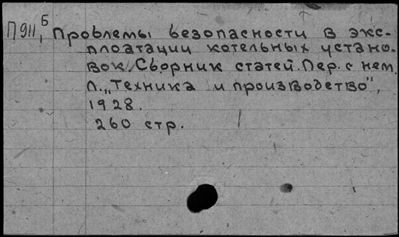 П 911, Б Проблемы безопасности в экс-
плоатации котельных устано-
вок. Сборник статей. Пер. с нем.
Л., „Техника и производство",
1928.
260 стр.